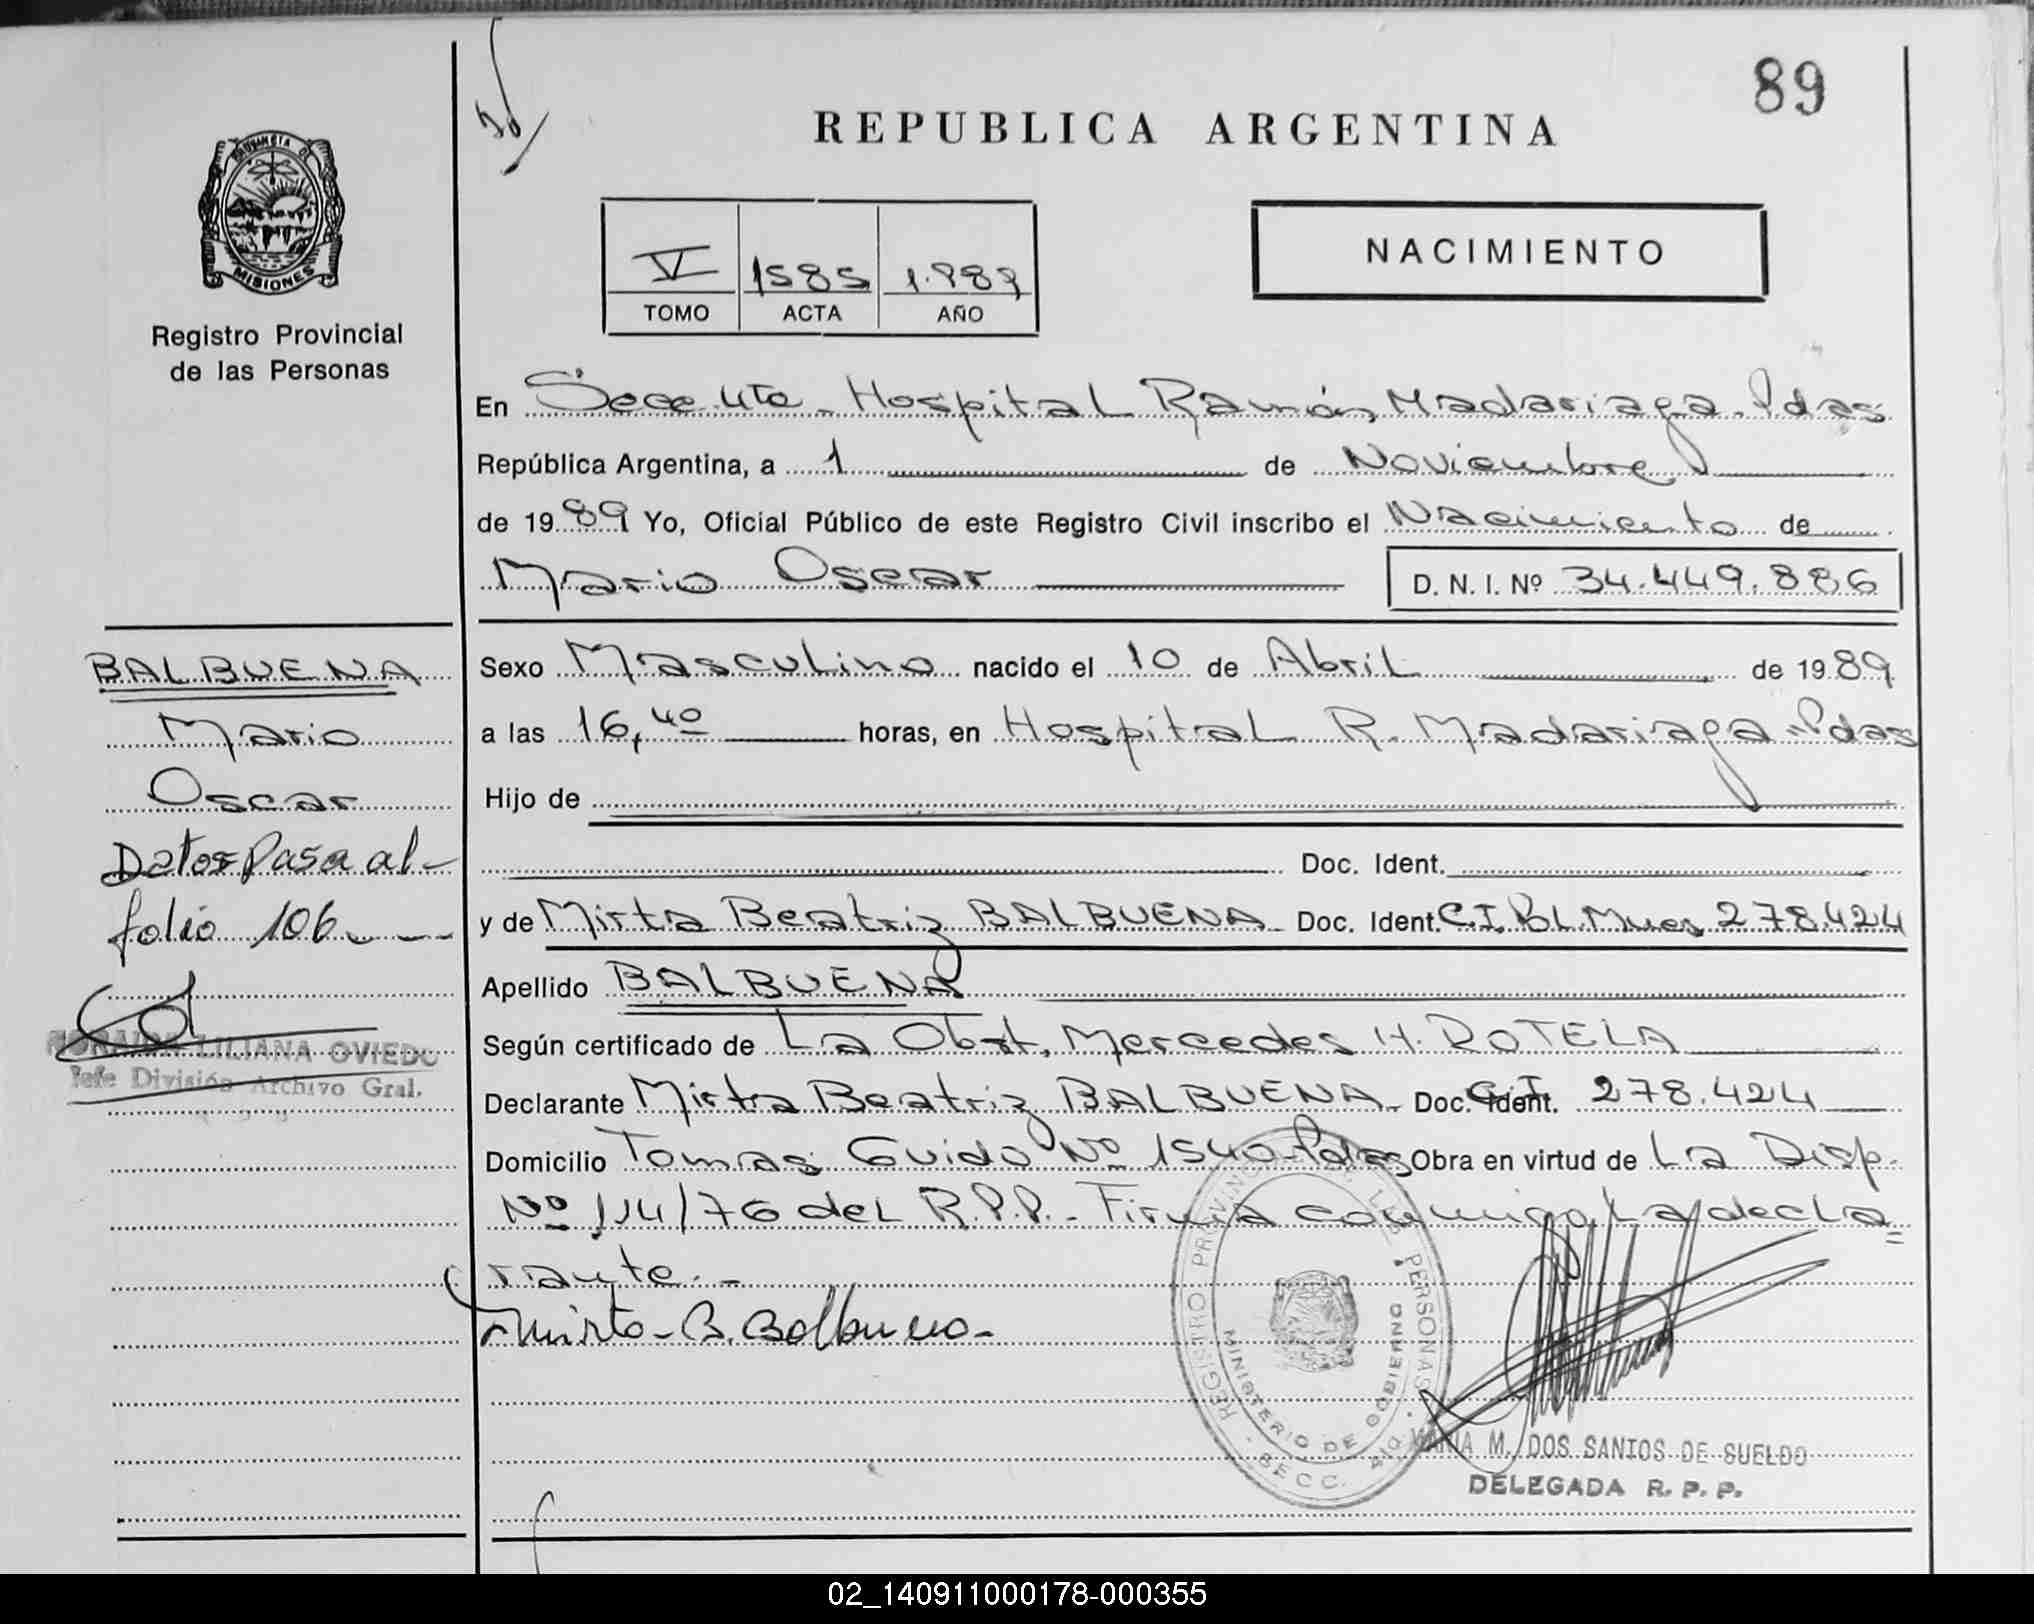 89
REPUBLICA ARGENTINA
PROVINCIA DE
MISIONES
Registro Provincial
de las Personas
V 1585 1.989
TOMO ACTA AÑO
NACIMIENTO
En Secc. 4ta. Hospital Ramón Madariaga. Pdas
República Argentina, a 1 de Noviembre
de 1989 Yo, Oficial Público de este Registro Civil inscribo el Nacimiento de
Mario Oscar D. N. I. Nº 34.449.886
BALBUENA
Mario
Oscar
Datos Pasa al
folio 106
LILIANA OVIEDO
Jefe División Archivo Gral.
Sexo Masculino nacido el 10 de Abril de 1989
a las 16,40 horas, en Hospital R. Madariaga. Pdas
Hijo de
Doc. Ident.
y de Mirta Beatriz BALBUENA Doc. Ident. C.I. 278.424
Apellido BALBUENA
Según certificado de La Obst. Mercedes H. ROTELA
Declarante Mirta Beatriz BALBUENA Doc. Ident. C.I. 278.424
Domicilio Tomas Guido Nº 1540 Pdas Obra en virtud de La Disp.
Nº 114/76 del R.P.P. - Firma conmigo La decla=
rante. -
Mirta - B. Balbuena -
REGISTRO PROVINCIAL DE LAS PERSONAS
MINISTERIO DE GOBIERNO
SECC. 4
MARIA M. DOS SANTOS DE SUELDO
DELEGADA R. P. P.
02_140911000178-000355